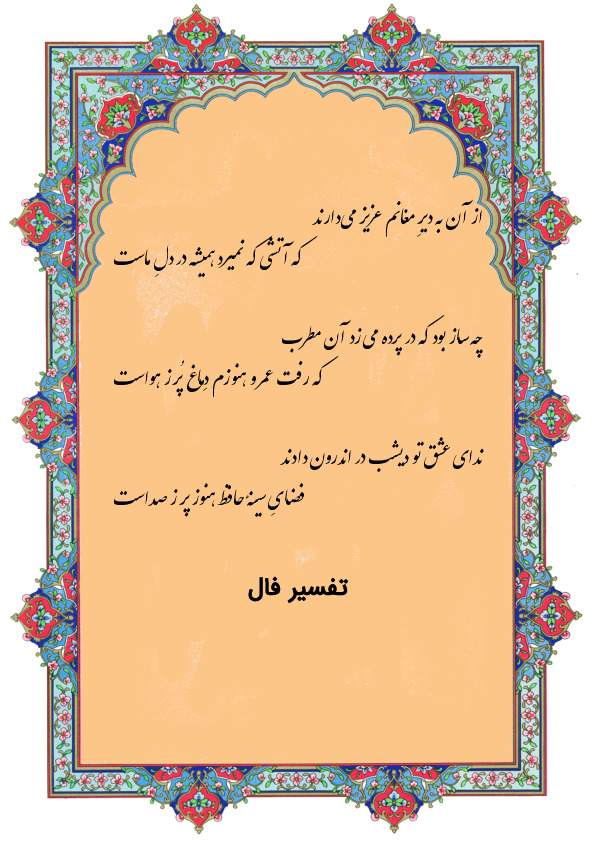 از آن به دیرِ مغانم عزیز می‌دارند
که آتشی که نمیرد همیشه در دلِ ماست
چه ساز بود که در پرده می زد آن مطرب
که رفت عمر و هنوزم دِماغ پُر ز هواست
ندای عشق تو دیشب در اندرون دادند
فضایِ سینهٔ حافظ هنوز پر ز صداست
تفسیر فال